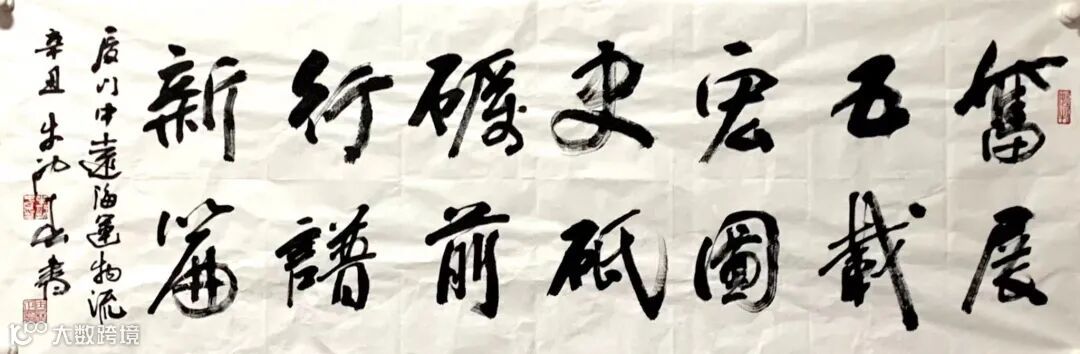 奮展
五載
宏圖
史砥
礪前
行譜
新篇
厦门中遠海運物流
辛丑 書
大数跨境